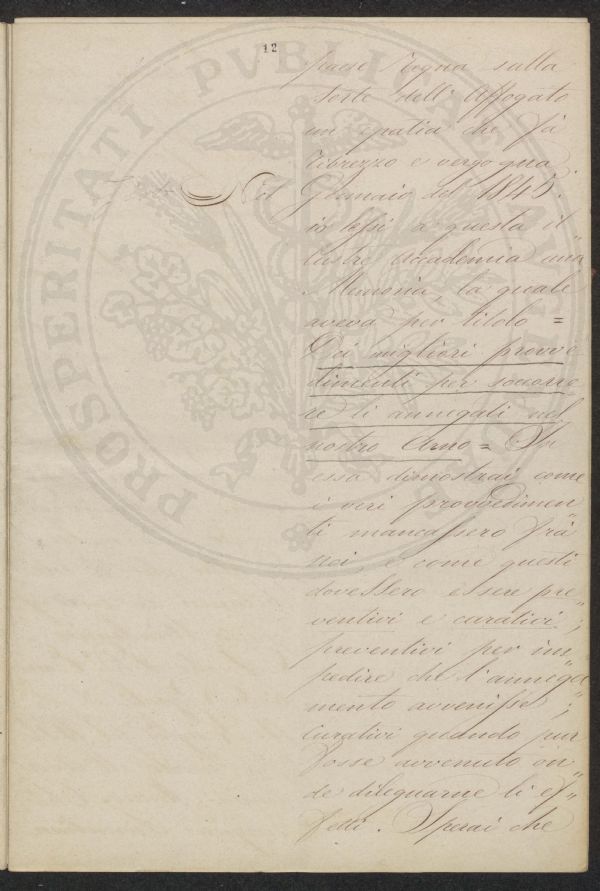 12
paese regna sulla
sorte dell' Affogato
un apatia che fà
ribrezzo e vergogna
Nel Gennaio del 1845.
io lessi a questa il„
lustre Accademia una
Memoria, la quale
aveva per titolo =
Dei migliori provve
dimenti per soccorre
re li annegati nel
nostro Arno = In
essa dimostrai come
i veri provvedimen
ti mancassero frà
noi, e come questi
dovessero essere pre„
ventivi e curativi;
preventivi per im„
pedire che l'annega
mento avvenisse;
Curativi quando pur
fosse avvenuto on„
de dileguarne li ef„
fetti. Sperai che
PROSPERITATI PVBLICAE